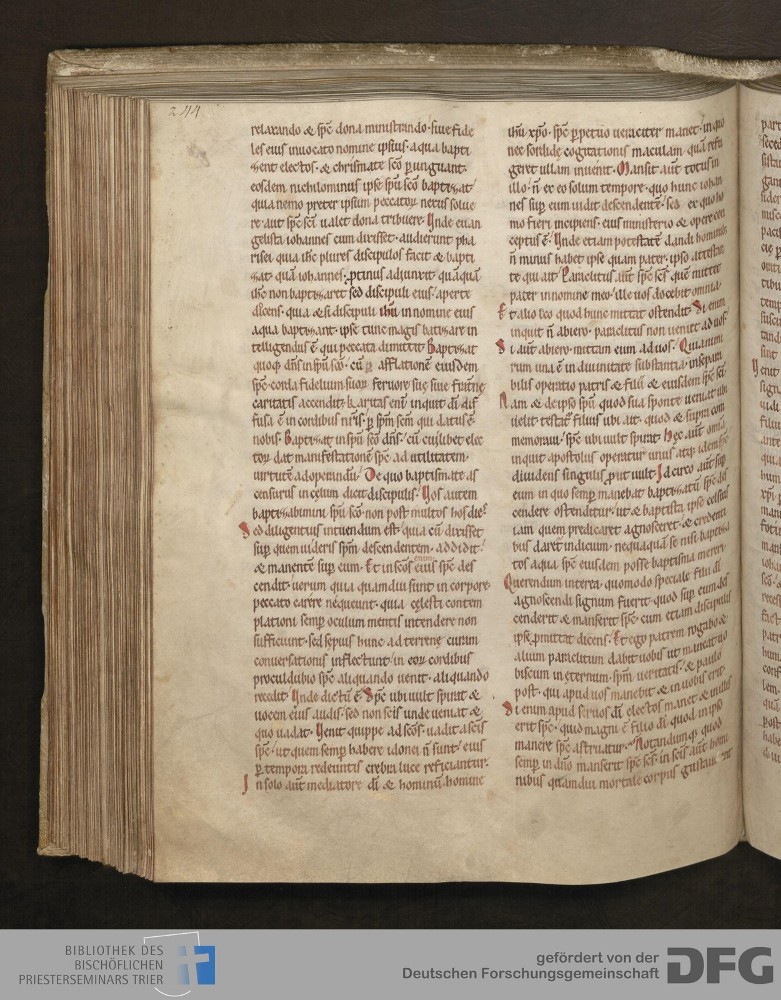 244
relaxando & spc dona ministrando· siue fide
les eius inuocato nomine ipsius· aqua bapti
zent electos· & chrismate sco p unguant·
eosdem nichilominus ipse spu sco baptizat
quia nemo preter ipsum peccator nexus solue
re aut spc sci ualet dona tribuere· Unde euan
gelista iohannes cum dixisset· audierunt pha
risei quia ihc plures discipulos facit & bapti
zat quā iohannes· ptinus adiunxit quāquā
ihc non baptizaret sed discipuli eius· aperte
docens· quia & si discipuli ihu in nomine eius
aqua baptizant· ipse tunc magis batizare in
telligendus ē qui peccata dimittit Baptizat
quoq dns in spu sco· cū afflatione eiusdem
spc corda fidelium suor feruore siue fraterne
caritatis accendit· karitas eni inquit di dif
fusa ē in cordibus nris· p spm scm qui datus ē
nobis· Baptizat in spu sco dns· cū cuilibet elec
tor dat manifestationē spc ad utilitatem·
uirtutē ad operandū· De quo baptismate as
censurus in celum dicit discipulis· Uos autem
baptizabimini spu sco· non post multos hos dies
Sed diligentius intuendum est· quia cū dixisset
sup quem uideris spm descendentem· addidit·
& manentē sup eum· Et in scos eius spc des
cendit· uerum quia quamdiu sunt in corpore
peccato carere nequeunt· quia celesti contem
plationi semp oculum mentis intendere non
sufficiunt· sed sepius hunc ad terrene curam
conuersationis inflectunt· in eor cordibus
proculdubio spc aliquando uenit· aliquando
recedit Unde dictū ē· Spc ubi uult spirat &
uocem eius audis· sed non scis unde ueniat &
quo uadat· Uenit quippe ad scos· uadit a scis
spc· ut quem semp habere idonei n sunt· eius
p tempora redeuntis crebra luce reficiantur·
In solo aut mediatore di & hominū homine
ihu xpo· spc ppetuo ueraciter manet· in quo
nec sordide cogitationis maculam quā refu
geret ullam inuenit· Mansit aut totus in
illo· n ex eo solum tempore· quo hunc iohan
nes sup eum uidit descendentē· sed ex quo ho
mo fieri incipiens· eius ministerio & opere con
ceptus ē· Unde etiam potestatē dandi hominibus
n minus habet ipse quam pater· ipso attestan
te qui ait Paraclitus aut spc scs quē mittet
pater in nomine meo· ille uos docebit omnia·
Et alio loco quod hunc mittat ostendit Si enim
inquit n abiero· paraclitus non ueniet ad uos
Si aut abiero· mittam eum ad uos· Quia enim
rum una ē in diuinitate substantia· insepara
bilis operatio patris & filii & eiusdem spc sci·
Nam & de ipso spu quod sua sponte ueniat ubi
uelit testat filius ubi ait· quod & supra com
memoraui· spc ubi uult spirat Hec aut omnia
inquit apostolus operatur unus atq idem spc
diuidens singulis put uult Idcirco aut sup
eum in quo semp manebat baptizatū spc des
cendere ostenditur· ut & baptista ipse celsius
iam quem predicaret agnosceret· & credenti
bus daret indicium· nequaquā se nisi baptiza
tos aqua spc eiusdem posse baptisma mereri·
Querendum interea· quomodo speciale filii di
agnoscendi signum fuerit· quod sup eum des
cenderit & manserit spc· cum etiam discipulis
ipse pmittat dicens· Et ego patrem rogabo &
alium paraclitum dabit uobis ut maneat uo
biscum in eternum· spm ueritatis· & paulo
post· qui apud uos manebit & in uobis erit·
Si enim apud seruos di electos manet & in illis
erit spc· quid magni ē filio di quod in ipso
manere spc astruatur· Notandum q quod
semp in dno manserit spc scs· in scis aut homi
nibus quamdiu mortale corpus gestauerint
BIBLIOTHEK DES
BISCHÖFLICHEN
PRIESTERSEMINARS TRIER
gefördert von der
Deutschen Forschungsgemeinschaft
DFG